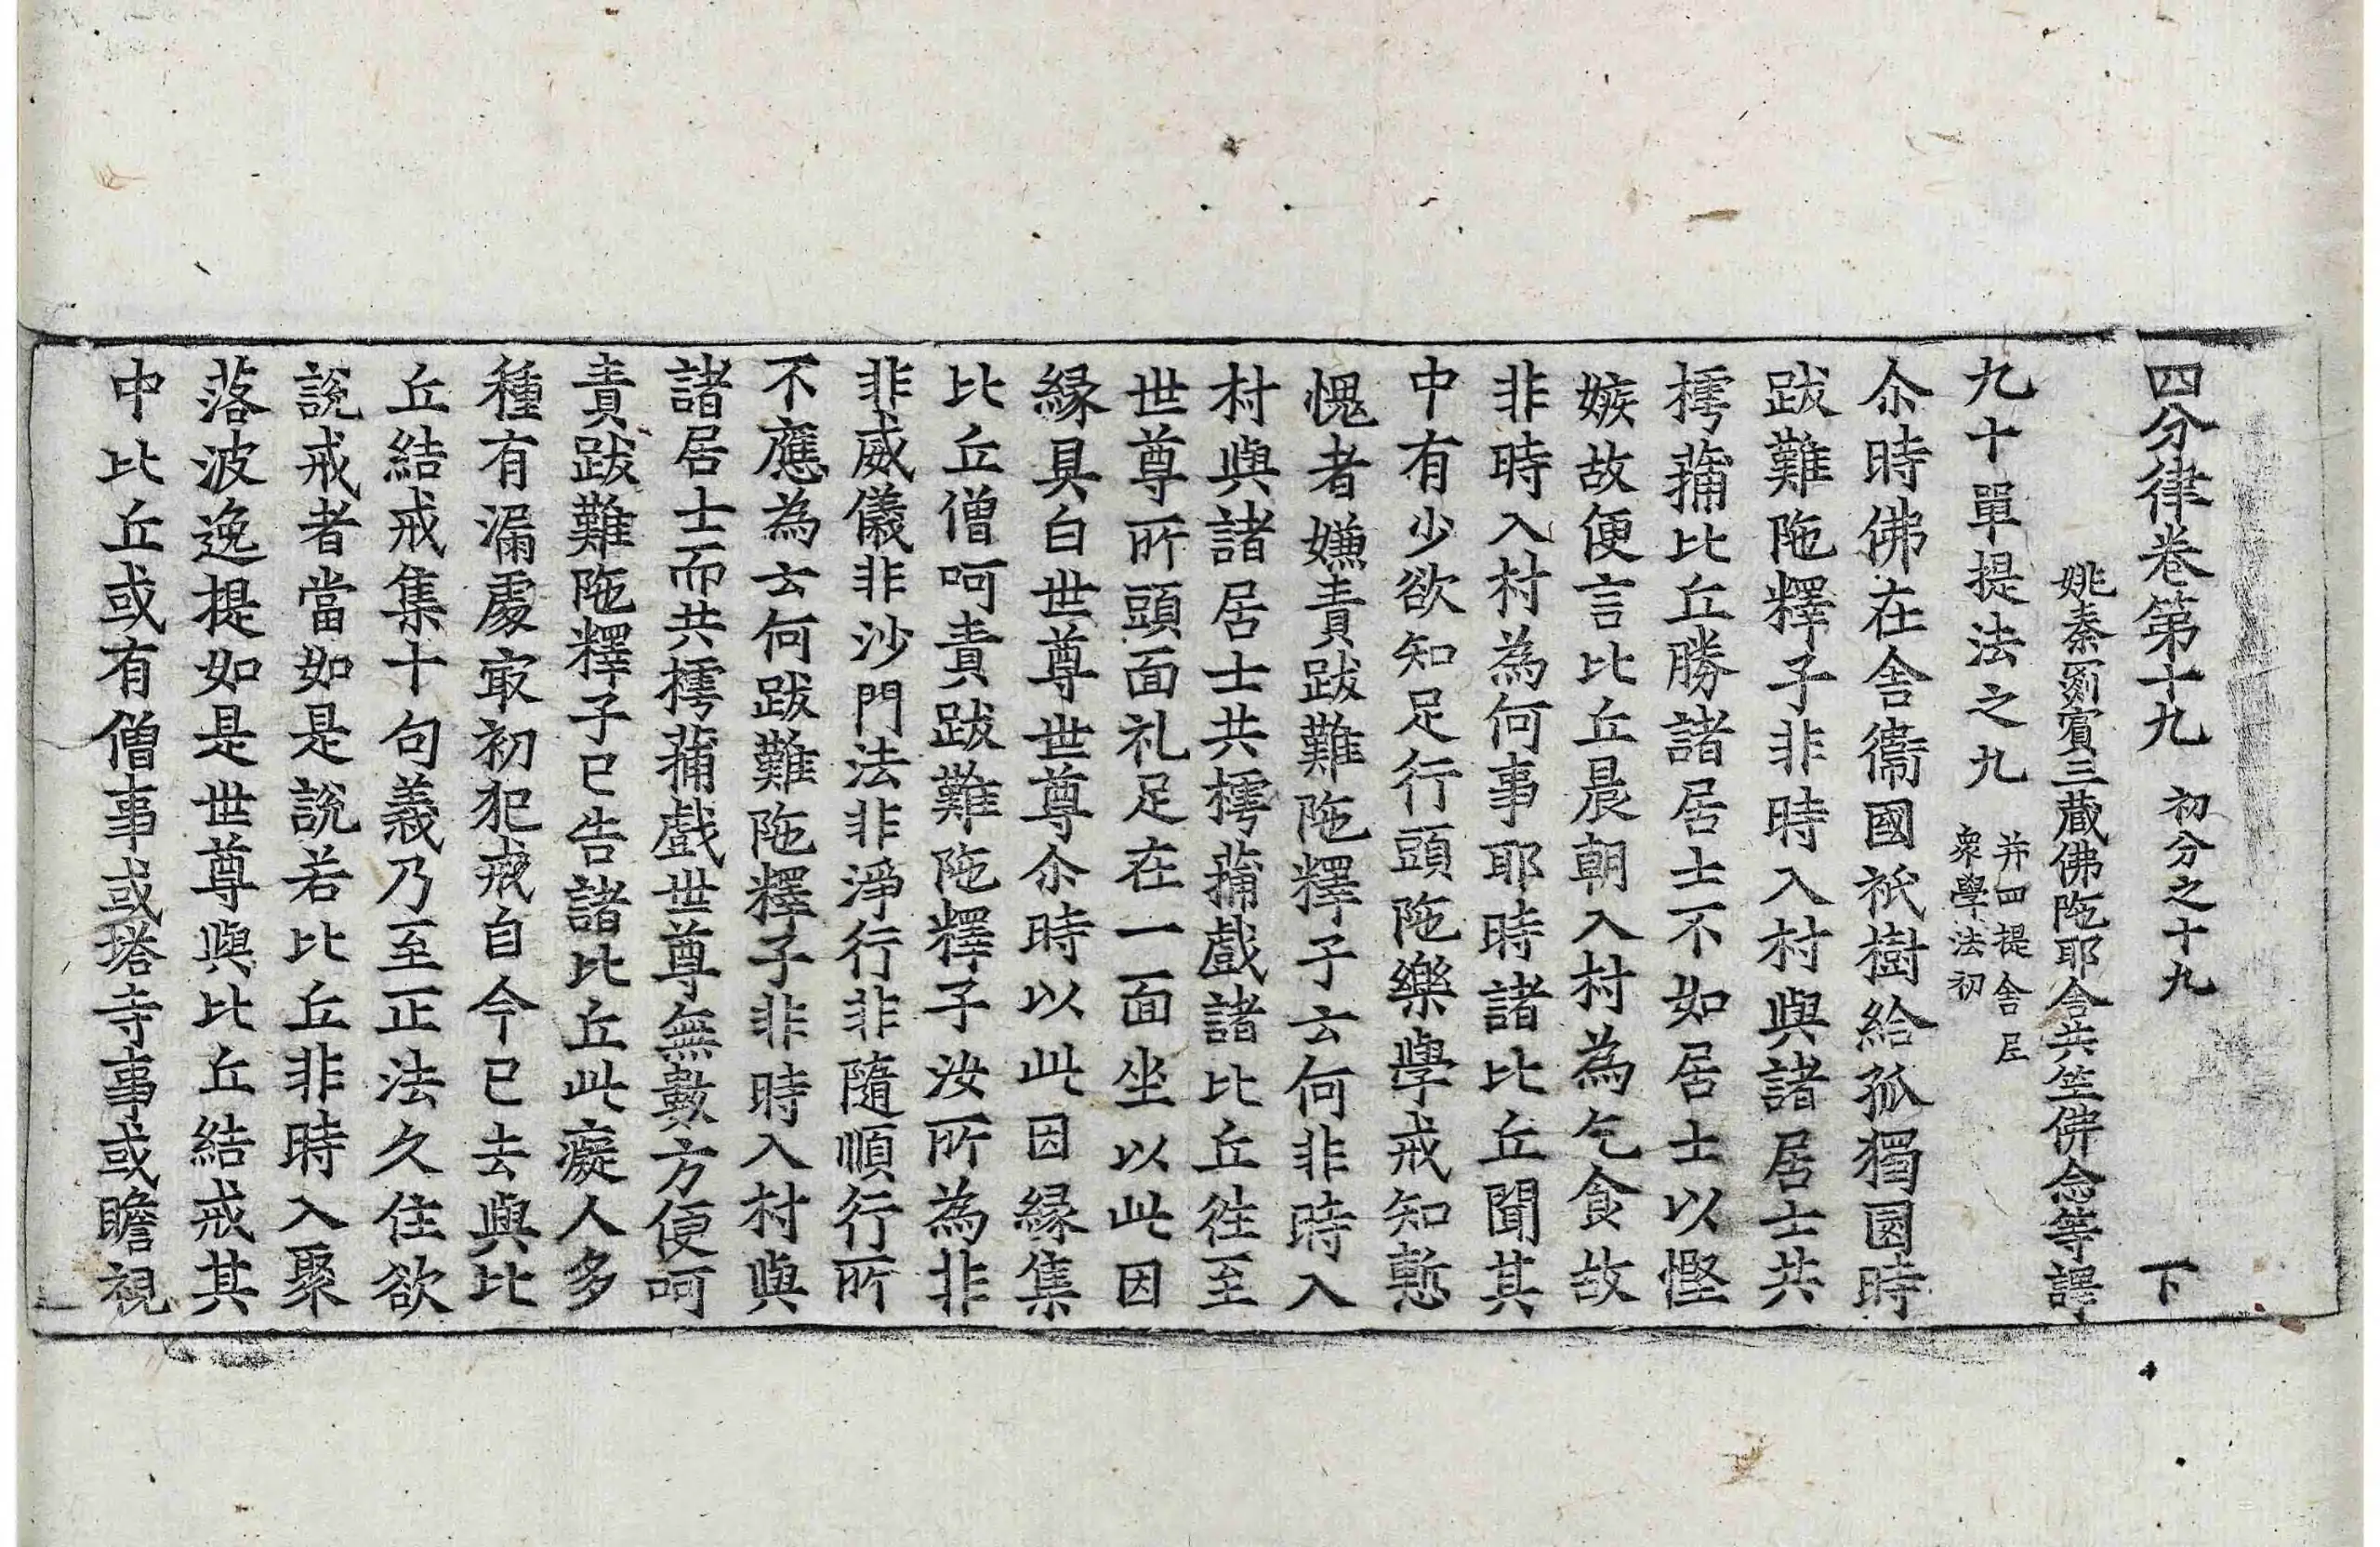 四分律卷第十九 初分之十九 下
姚秦罽賓三藏佛陁耶舍共竺佛念等譯
九十單提法之九 并四提舍尼 衆學法初
尒時佛在舍衛國祇樹給孤獨園時
跋難陁釋子非時入村與諸居士共
樗蒱比丘勝諸居士不如居士以慳
嫉故便言比丘晨朝入村為乞食故
非時入村為何事耶時諸比丘聞其
中有少欲知足行頭陁樂學戒知慙
愧者嫌責跋難陁釋子云何非時入
村與諸居士共樗蒱戲諸比丘往至
世尊所頭面礼足在一面坐以此因
緣具白世尊世尊尒時以此因緣集
比丘僧呵責跋難陁釋子汝所為非
非威儀非沙門法非淨行非隨順行所
不應為云何跋難陁釋子非時入村與
諸居士而共樗蒱戲世尊無數方便呵
責跋難陁釋子已告諸比丘此癡人多
種有漏處㝡初犯戒自今已去與比
丘結戒集十句義乃至正法久住欲
說戒者當如是說若比丘非時入聚
落波逸提如是世尊與比丘結戒其
中比丘或有僧事或塔寺事或瞻視